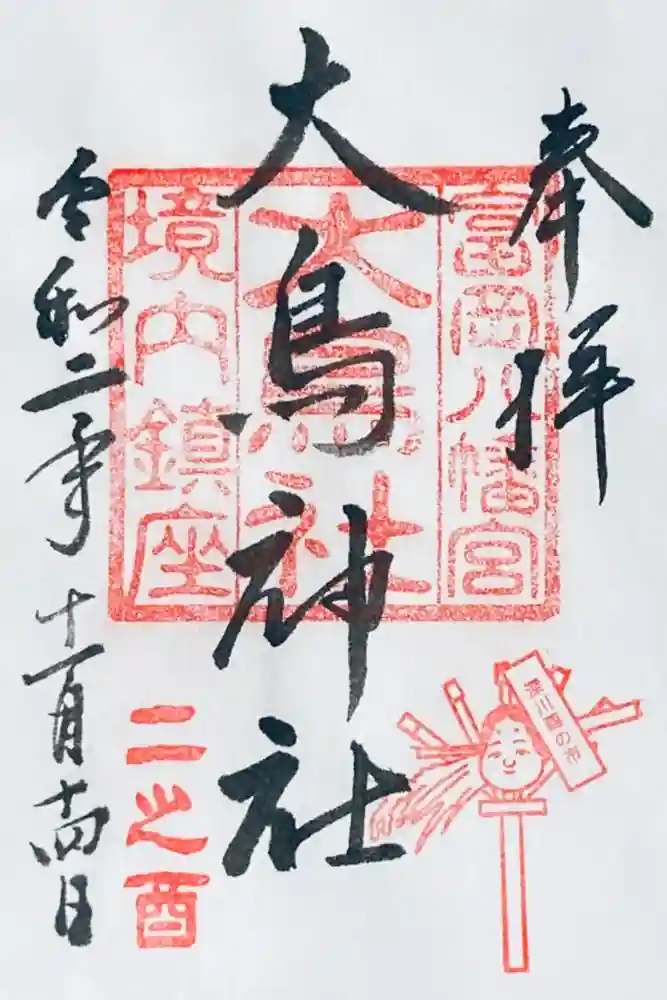 奉拝
大鳥神社
富岡八幡宮
大鳥神社
境内鎮座
令和二年十一月十四日
二之酉
深川酉の市